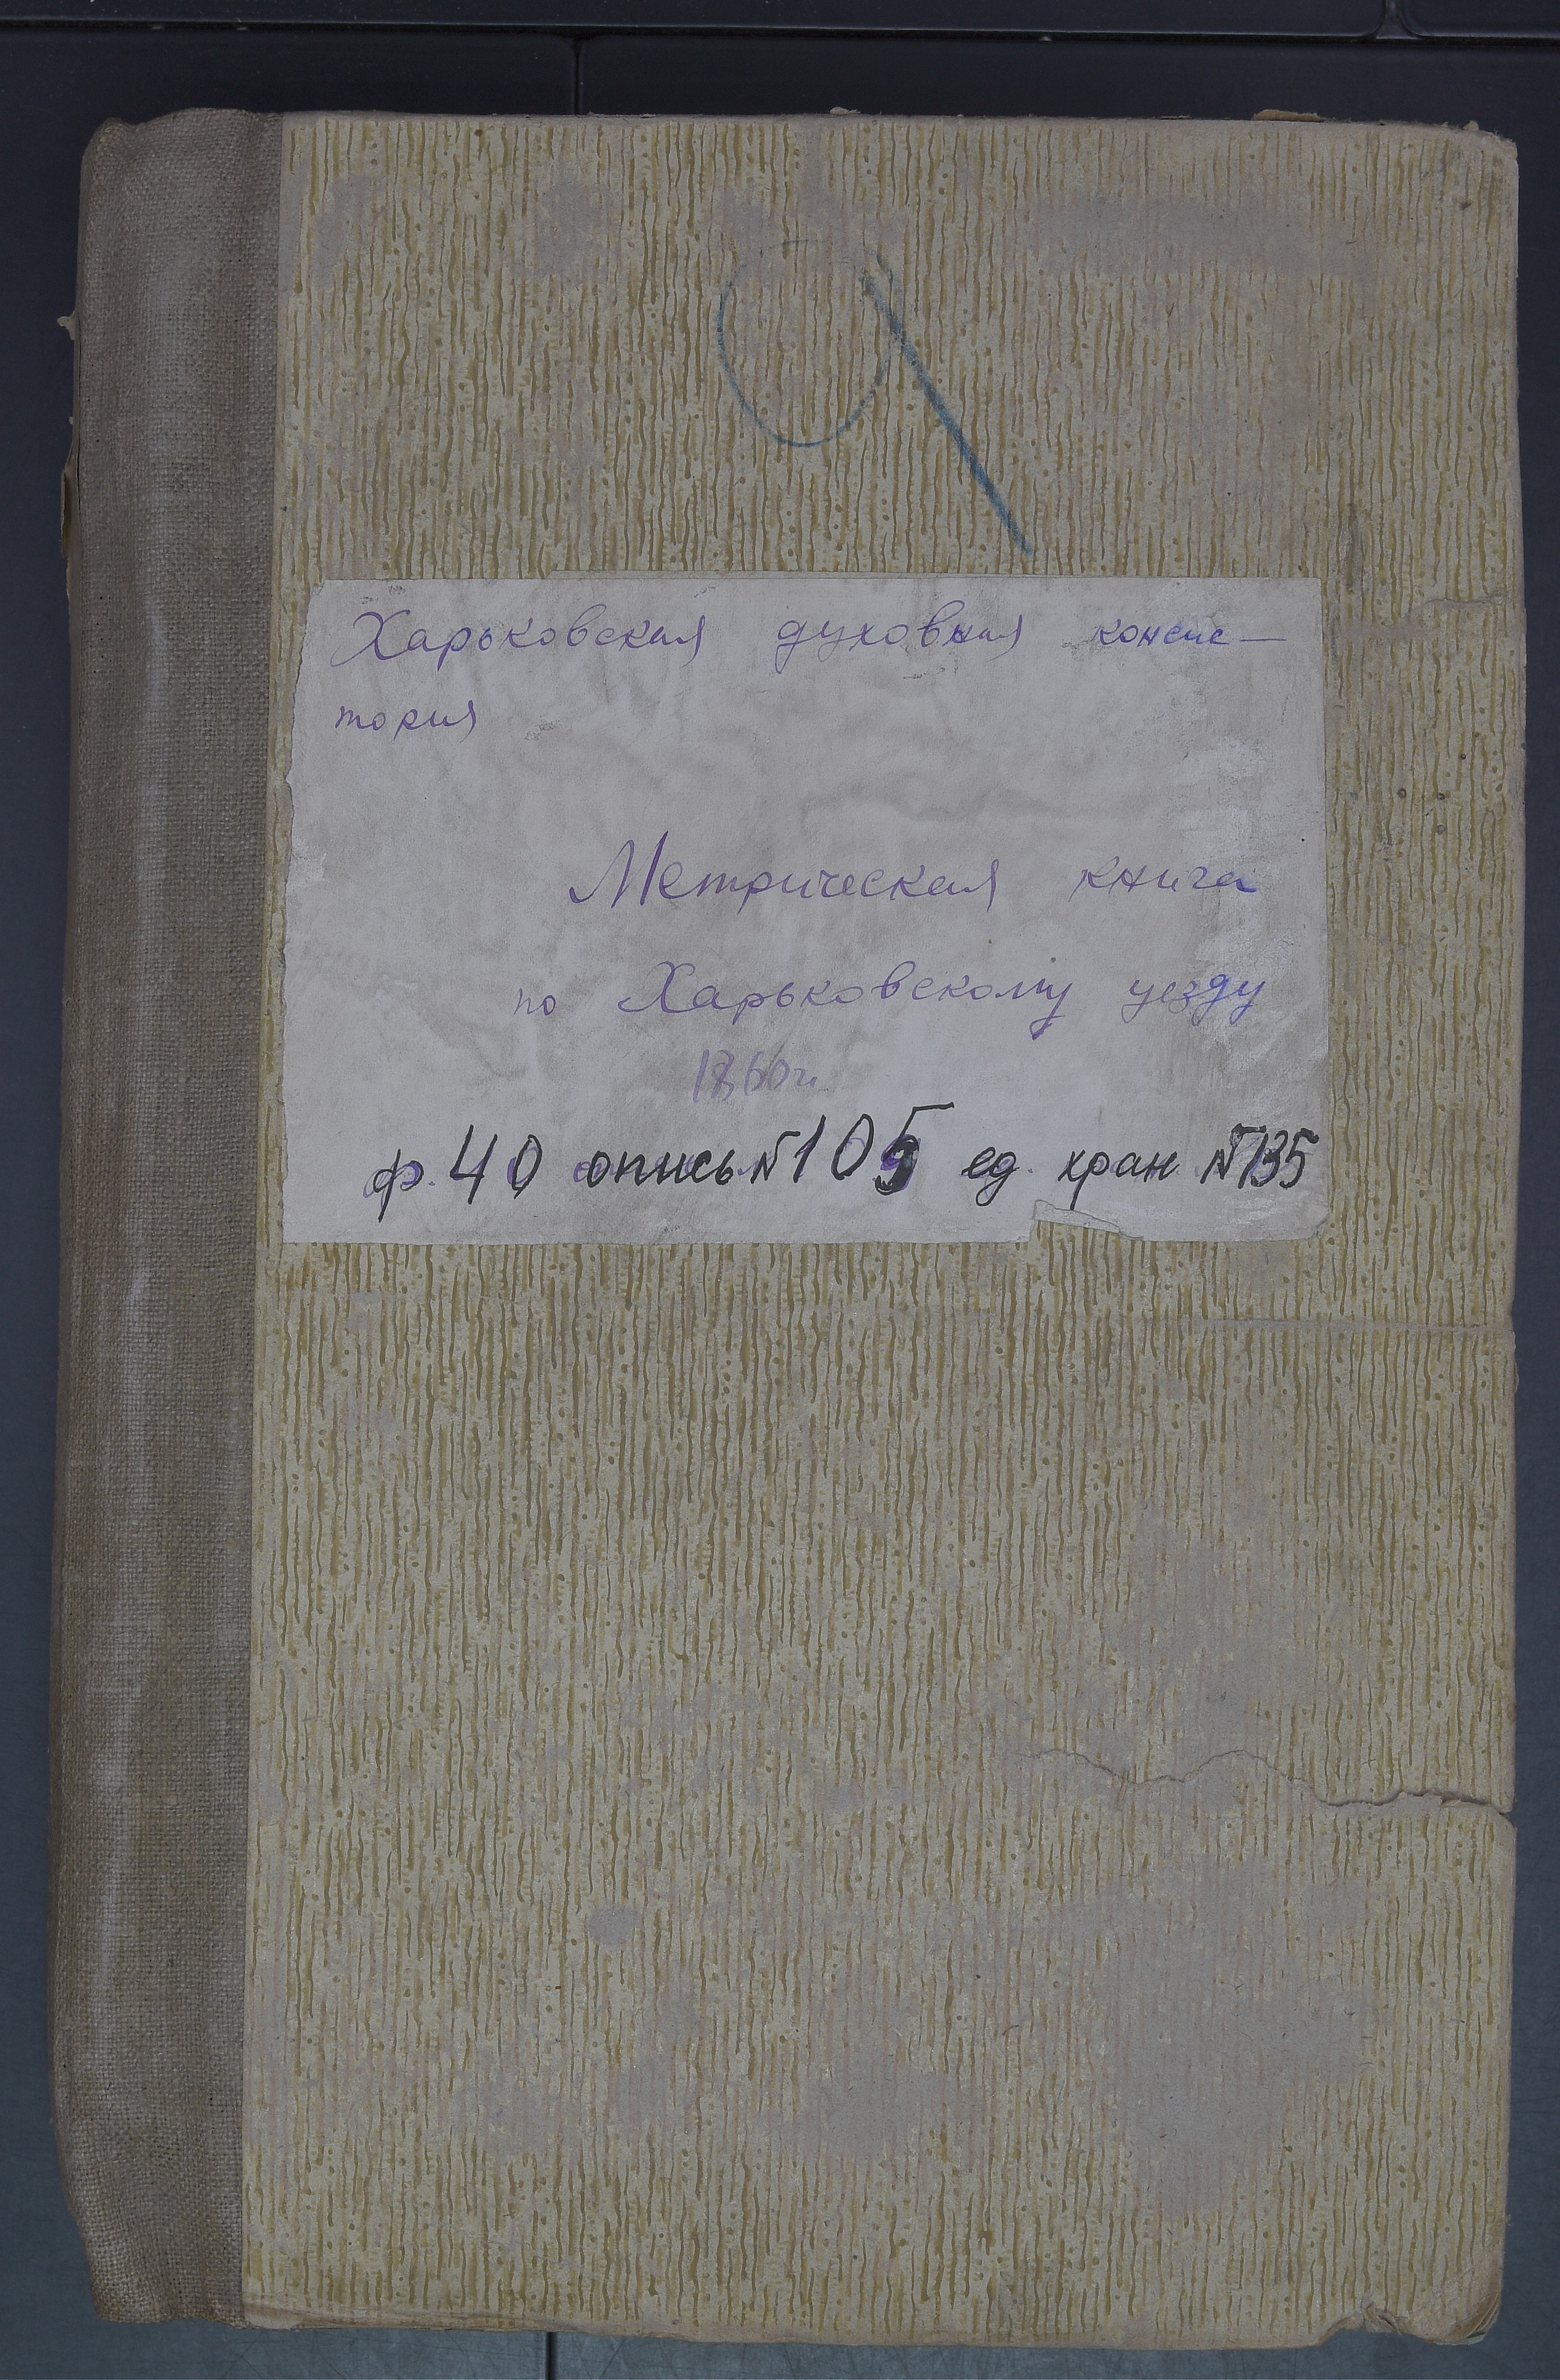 Харьковская духовная консис-
тория
Метрическая книга
по Харьковскому уезду
1860 г.
ф. 40 опись № 105 ед. хран № 735